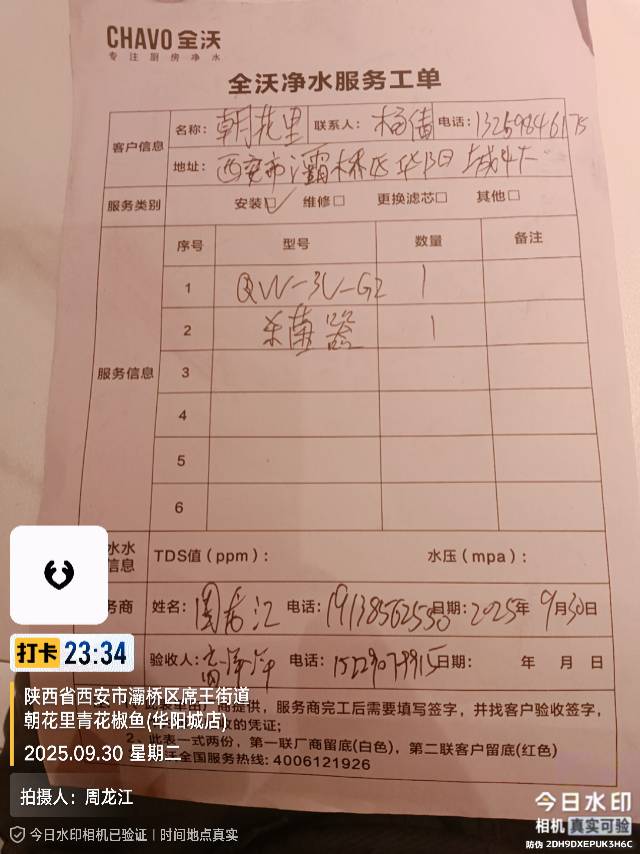 CHAVO 全沃
专注厨房净水
全沃净水服务工单
客户信息 名称: 朝花里 联系人: 杨倩 电话: 13259846175
地址: 西安市灞桥区华阳城4
服务类别 安装☑ 维修□ 更换滤芯□ 其他□
服务信息
序号 型号 数量 备注
1 QW-3U-G2 1
2 杀菌器 1
3
4
5
6
水水
信息 TDS值(ppm): 水压(mpa):
务商 姓名: 周龙江 电话: 19138562550 日期: 2025年9月30日
验收人: 电话: 日期: 年 月 日
商提供,服务商完工后需要填写签字,并找客户验收签字,
的凭证;
2、此表一式两份,第一联厂商留底(白色),第二联客户留底(红色)
全国服务热线: 4006121926
打卡 23:34
陕西省西安市灞桥区席王街道
朝花里青花椒鱼(华阳城店)
2025.09.30 星期二
拍摄人: 周龙江
今日水印相机已验证 | 时间地点真实
今日水印
相机 真实可验
防伪 2DH9DXEPUK3H6C